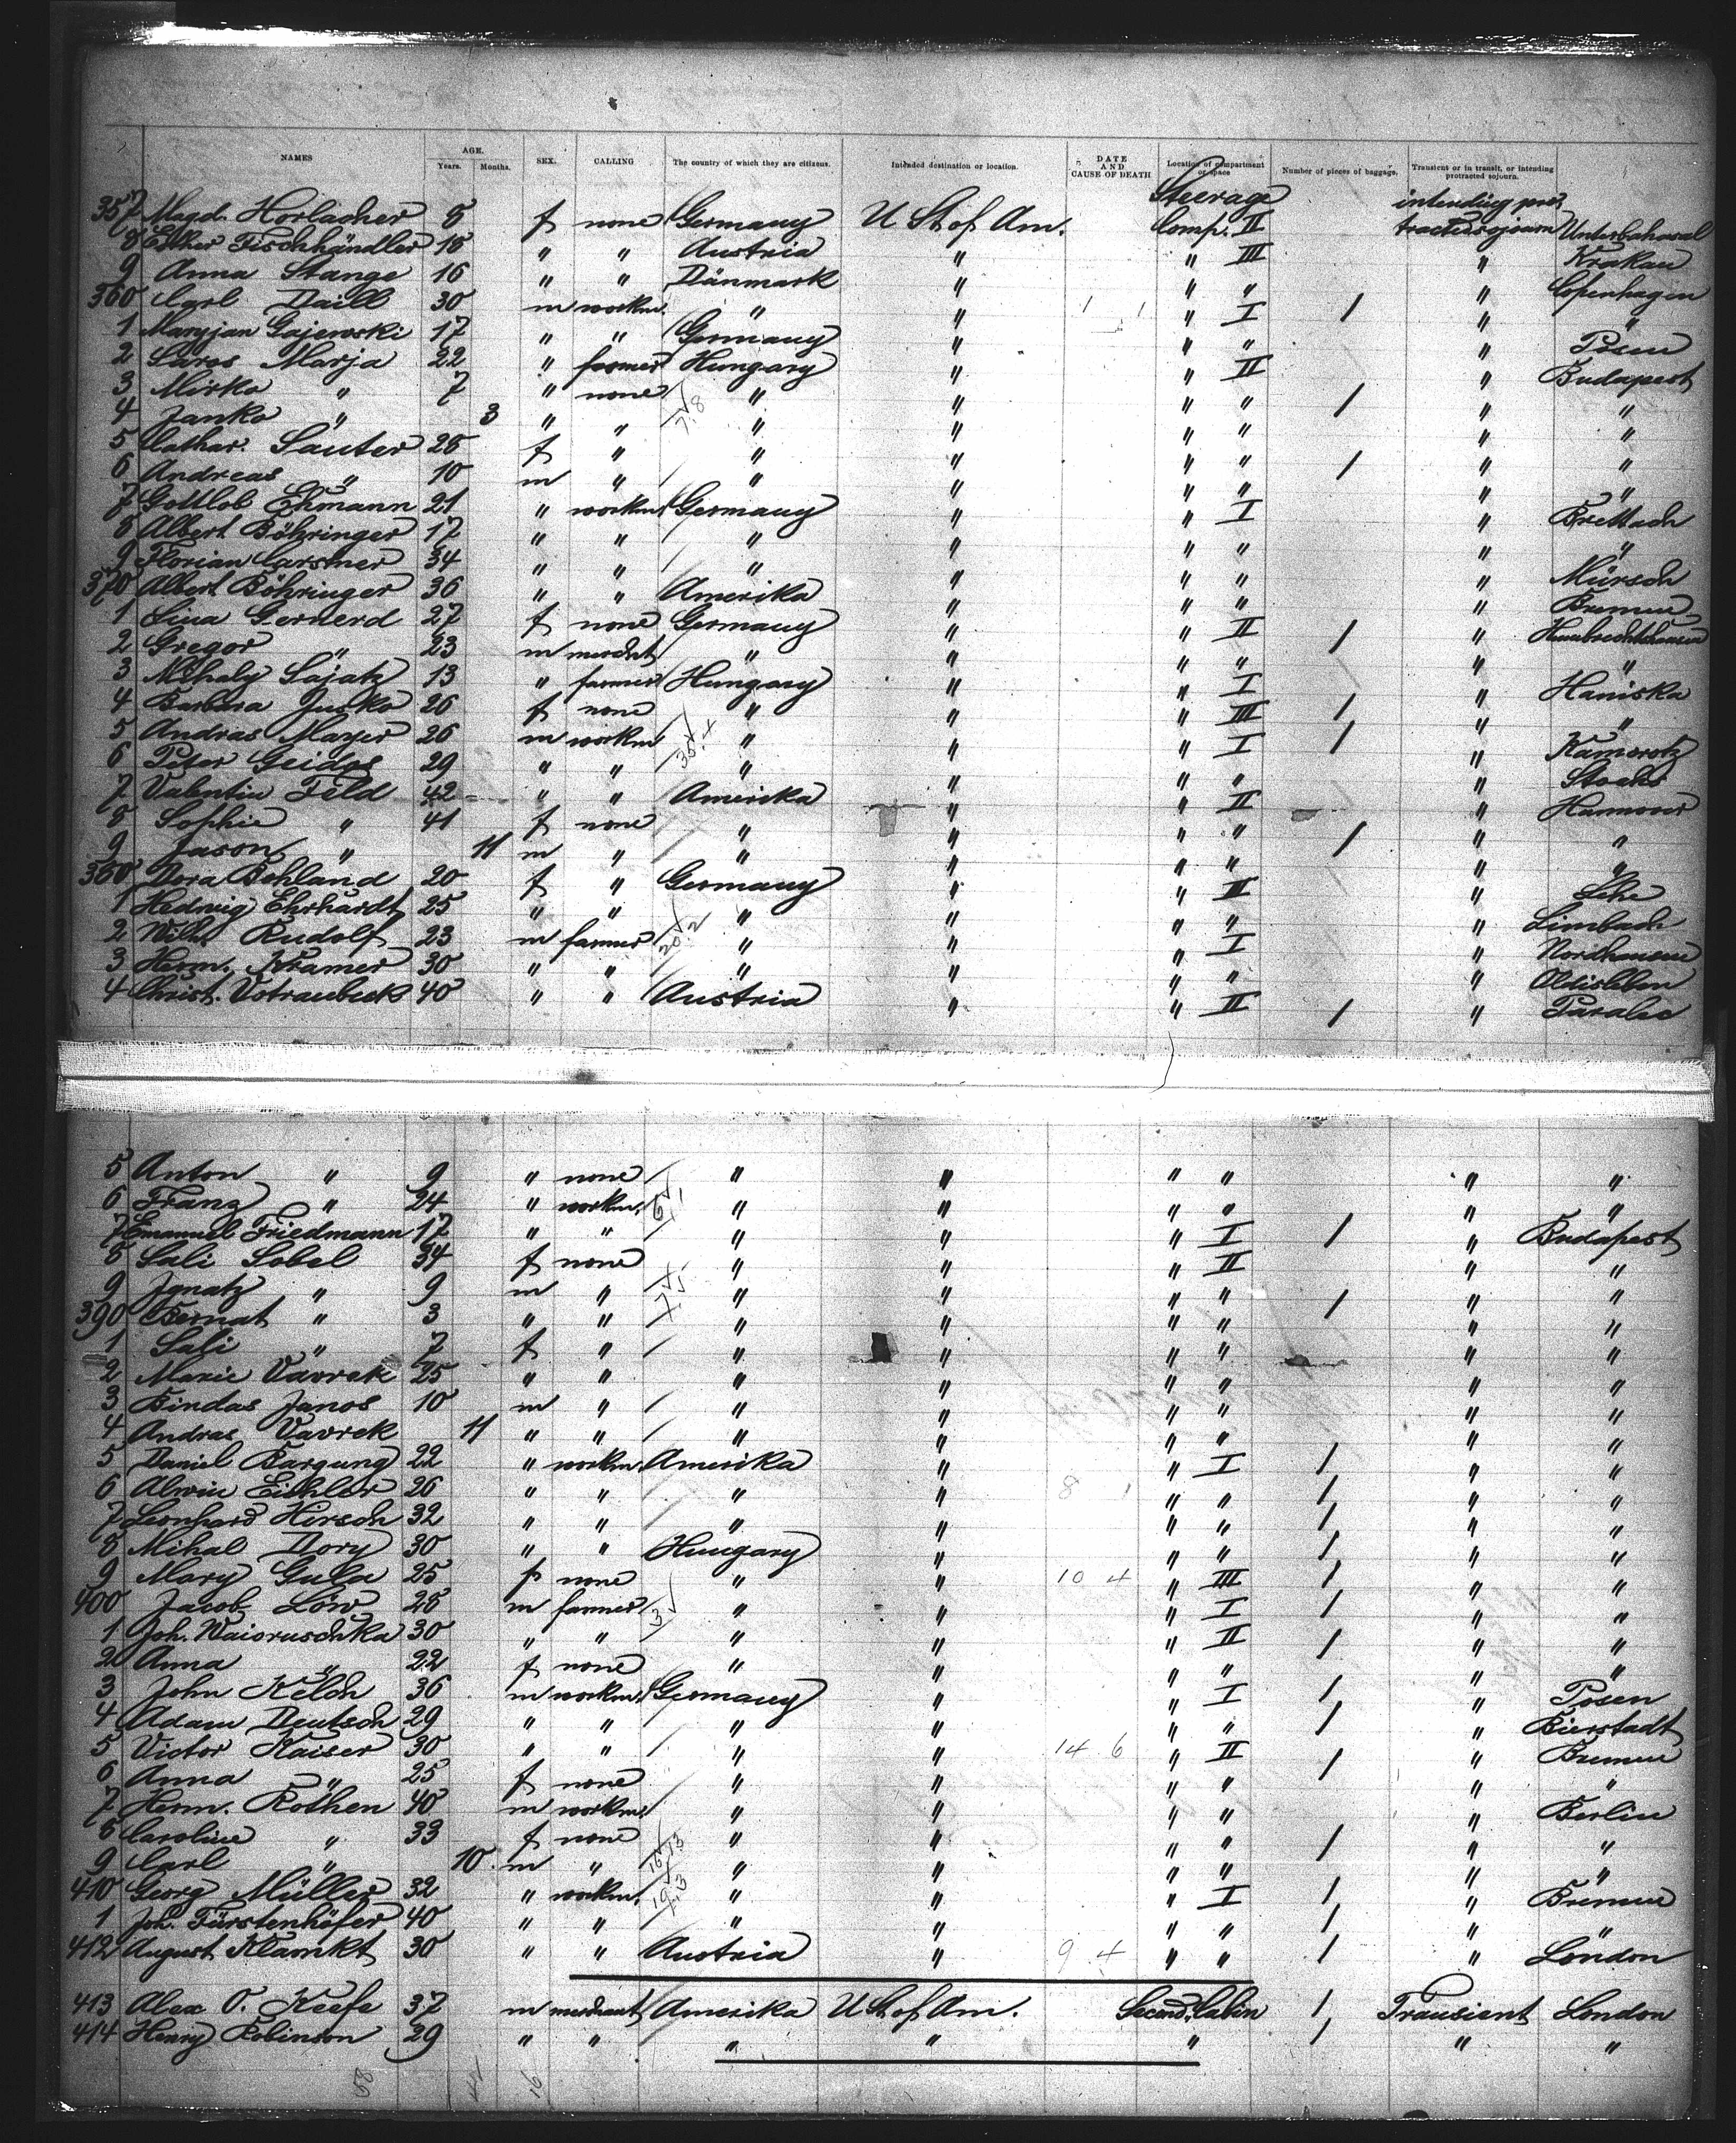 NAMES AGE. Years. Months. SEX. CALLING The country of which they are citizens. Intended destination or location. DATE AND CAUSE OF DEATH Location of compartment or space Number of pieces of baggage. Transient or in transit, or intending protracted sojourn.
Steerage intending pro-
357 Magd. Horlacher 8 f none Germany U St of Am. Comp. II tracted sojourn
8 Esther Fischhändler 18 " " Austria " " III " Krakau
9 Anna Stange 16 " " Dänmark " " " " Copenhagen
360 Carl Daill 30 m workm. " " 1 1 " I / " "
1 Maryjan Gajewski 17 " " Germany " " " " Posen
2 Saros Marja 22 " farmer Hungary " " II " Budapest
3 Mirko " 7 " none " " " " / " "
4 Janko " 3 " " 7.8 " " " " " "
5 Cathar. Sauter 28 f " " " " " / " "
6 Andreas " 10 m " " " " " " "
7 Gottlob Ehmann 21 " workm. Germany " " I " Brettach
8 Albert Böhringer 17 " " " " " " " "
9 Florian Carsmer 34 " " " " " " " Mürsch
370 Albert Böhringer 36 " " Amerika " " " " Bremen
1 Lina Gernerd 27 f none Germany " " II / "
2 Gregor " 23 m mercht " " " " " "
3 Mihaly Sajatz 13 " farmer Hungary " " I " Haniska
4 Barbara Jusko 26 f none " " " III / " "
5 Andras Mayer 26 m workm 35.4 " " " I / " Kamorotz
6 Peter Geidos 29 " " " " " " "
7 Valentin Feld 42 " " Amerika " " II " Hannover
8 Sophie " 41 f none " " " " / " "
9 Jason " 11 m " " " " " " "
380 Dora Bohland 20 f " Germany " " III " Lehe
1 Hedwig Ehrhardt 25 " " " " " " " Limbach
2 Wilh. Rudolf 23 m farmer 20.2 " " " I " Nordhausen
3 Herm. Kramer 30 " " " " " " " Oldisleben
4 Christ. Votraubeck 40 " " Austria " " II / "
5 Anton " 9 " none " " " " " "
6 Franz " 24 " workm. 6.1 " " " " " "
7 Emanuel Friedmann 17 " " " " " I / " Budapest
8 Sali Sobel 34 f none " " " II " "
9 Ignatz " 9 m " 7.5 " " " " / " "
390 Bernat " 3 " " " " " " " "
1 Sali " 7 f " " " " " " "
2 Marie Vavrek 25 " " " " " " " "
3 Bindas Janos 10 m " " " " " " "
4 Andras Vavrek 11 " " " " " " " "
5 Daniel Bargung 22 " workm. Amerika " " I / " "
6 Alwin Eichler 26 " " " " 8 1 " " / " "
7 Leonhard Hirsch 32 " " " " " " / " "
8 Mihal Dory 30 " " Hungary " " " / " "
9 Mary Gula 25 f none " " 10 4 " III / " "
400 Jacob Löw 28 m farmer 3 " " " I / " "
1 Joh. Waioruschka 30 " " " " " II / " "
2 Anna " 22 f none " " " " " "
3 John Kelch 36 m workm. Germany " " I / " Posen
4 Adam Deutsch 29 " " " " " " / " Bierstadt
5 Victor Kaiser 30 " " " " 14 6 " II / " Bremen
6 Anna " 25 f none " " " " " "
7 Herm. Rothen 40 m workm. " " " " " Berlin
8 Caroline " 33 f none " " " " / " "
9 Carl " 10 m " 16.13 " " " " " "
410 Georg Müller 32 " workm. 19.3 " " " I / " Bremen
1 Joh. Fürstenhöfer 40 " " " " " " / " "
412 August Klamkt 30 " " Austria " 9 4 " " / " London
413 Alex O. Keefe 37 m merchant Amerika U St of Am. Second Cabin / Transient London
414 Henry Robinson 29 " " " " " / " "
58 16